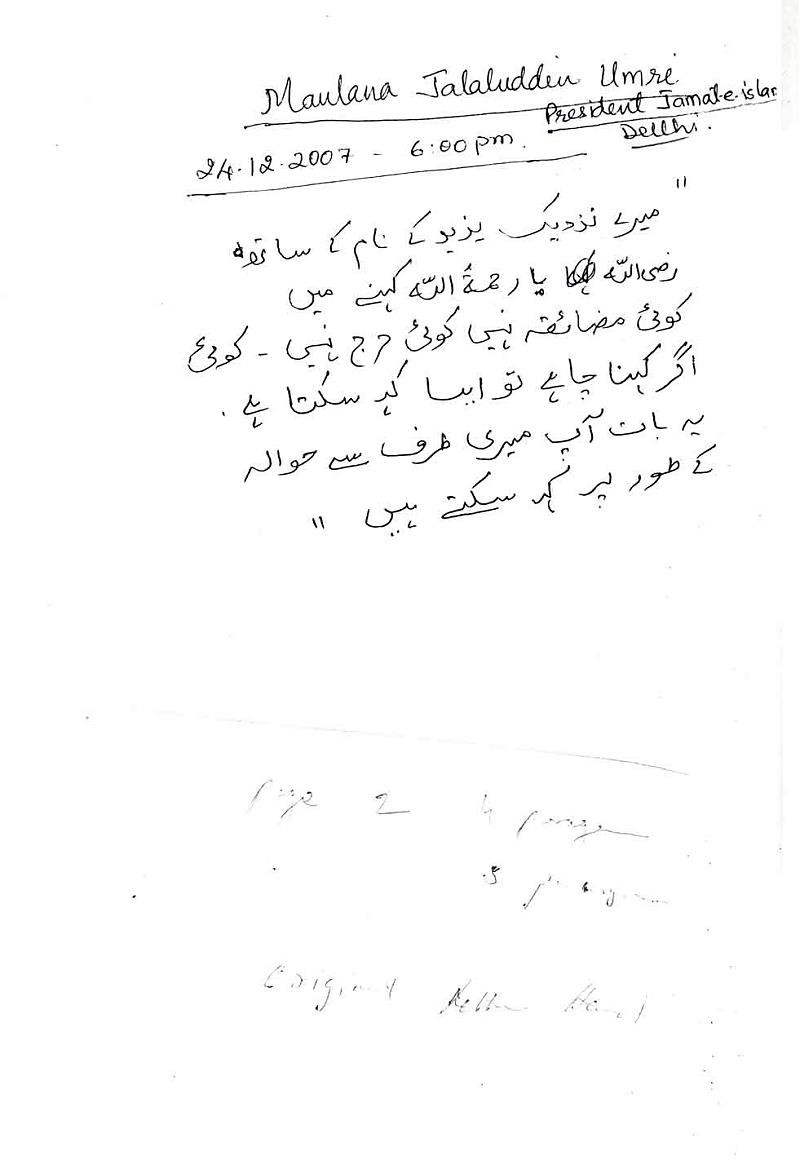 Maulana Jalaluddin Umri
President Jamat-e-islam
Dellhi.
24.12.2007 - 6:00pm.
" میرے نزدیک یزید کے نام کے ساتھ
رضی اللہ یا رحمۃ اللہ کہنے میں
کوئی مضائقہ نہیں کوئی حرج نہیں - کوئی
اگر کہنا چاہے تو ایسا کہہ سکتا ہے .
یہ بات آپ میری طرف سے حوالہ
کے طور پر کہہ سکتے ہیں "
Page 2 4
5
Original